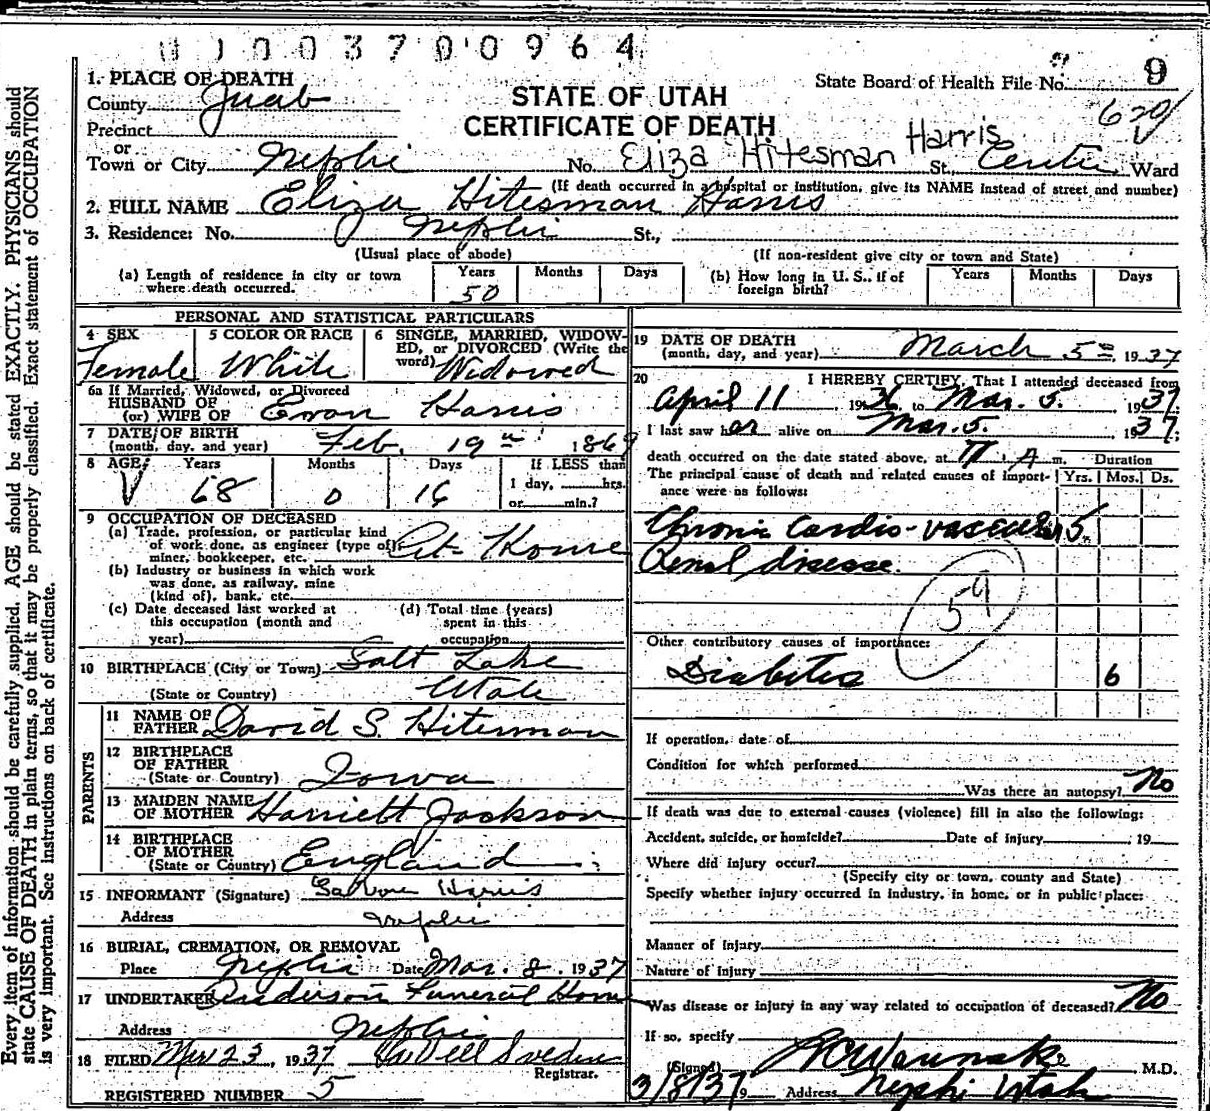 0003700964
1. PLACE OF DEATH
State Board of Health File No. 9
County Juab
STATE OF UTAH
620
Precinct
CERTIFICATE OF DEATH
or
Town or City Nephi No. Eliza Hitesman Harris St., Center Ward
(If death occurred in a hospital or institution, give its NAME instead of street and number)
2. FULL NAME Eliza Hitesman Harris
3. Residence: No. Nephi St.,
(Usual place of abode) (If non-resident give city or town and State)
(a) Length of residence in city or town where death occurred. Years 50 Months Days
(b) How long in U. S., if of foreign birth? Years Months Days
PERSONAL AND STATISTICAL PARTICULARS
4 SEX Female
5 COLOR OR RACE White
6 SINGLE, MARRIED, WIDOWED, or DIVORCED (Write the word) Widowed
6a If Married, Widowed, or Divorced
HUSBAND OF
(or) WIFE OF Ewan Harris
7 DATE OF BIRTH
(month, day, and year) Feb. 19th 1869
8 AGE Years 68 Months 0 Days 16 If LESS than 1 day, hrs. or min.?
9 OCCUPATION OF DECEASED
(a) Trade, profession, or particular kind of work done, as engineer (type of) miner, bookkeeper, etc. At Home
(b) Industry or business in which work was done, as railway, mine (kind of), bank, etc.
(c) Date deceased last worked at this occupation (month and year)
(d) Total time (years) spent in this occupation
10 BIRTHPLACE (City or Town) Salt Lake
(State or Country) Utah
PARENTS
11 NAME OF FATHER David S. Hitesman
12 BIRTHPLACE OF FATHER
(State or Country) Iowa
13 MAIDEN NAME OF MOTHER Harriett Jackson
14 BIRTHPLACE OF MOTHER
(State or Country) England
15 INFORMANT (Signature) Harris
Address Nephi
16 BURIAL, CREMATION, OR REMOVAL
Place Nephi Date Mar. 8, 1937
17 UNDERTAKER Anderson Funeral Home
Address Nephi
18 FILED Mar 23, 1937
Registrar.
REGISTERED NUMBER 5
19 DATE OF DEATH
(month, day, and year) March 5th, 1937
20 I HEREBY CERTIFY, That I attended deceased from
April 11, 1936 to Mar. 5. 1937
I last saw her alive on Mar. 5. 1937;
death occurred on the date stated above, at A m. Duration
The principal cause of death and related causes of importance were as follows: Yrs. Mos. Ds.
Chronic Cardio-vascular 5
Renal disease.
59
Other contributory causes of importance:
Diabetes 6
If operation, date of
Condition for which performed
Was there an autopsy? No
If death was due to external causes (violence) fill in also the following:
Accident, suicide, or homicide? Date of injury , 19
Where did injury occur?
(Specify city or town, county and State)
Specify whether injury occurred in industry, in home, or in public place:
Manner of Injury
Nature of Injury
Was disease or injury in any way related to occupation of deceased? No
If so, specify
(Signed) M.D.
3/8/37 9 Address Nephi Utah
Every item of information should be carefully supplied. AGE should be stated EXACTLY. PHYSICIANS should
state CAUSE OF DEATH in plain terms, so that it may be properly classified. Exact statement of OCCUPATION
is very important. See instructions on back of certificate.